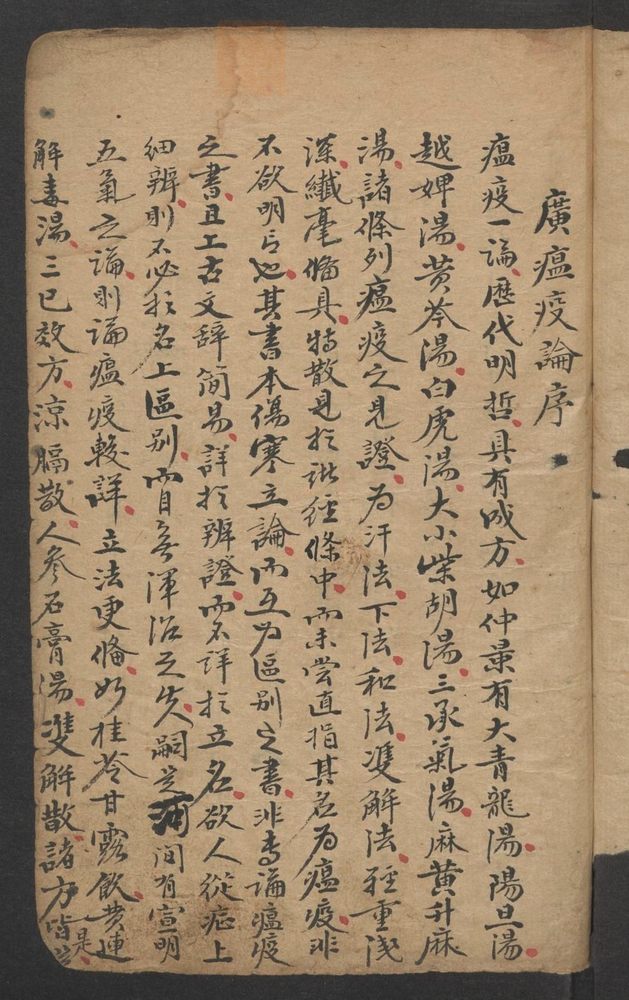 廣瘟疫論序
瘟疫一論、歷代明哲、具有成方、如仲景有大青龍湯、陽旦湯、
越婢湯、黄芩湯、白虎湯、大小柴胡湯、三承氣湯、麻黄升麻
湯、諸條列瘟疫之見證、為汗法、下法、和法、雙解法、輕重淺
深、纖毫備具、特散見於諸經條中、而未嘗直指其名為瘟疫、非
不欲明言也、其書本傷寒立論、而互為區别之書、非專論瘟疫
之書、且上古文辞簡易、詳於辨證、而不詳於立名、欲人從症上
細辨、則不必於名上區别、而自無渾淆之失、嗣是河間有宣明
五氣之論、則論瘟疫較詳、立法更備、如桂苓甘露飲、黄連
解毒湯、三已效方、涼膈散、人参石膏湯、雙解散、諸方皆是